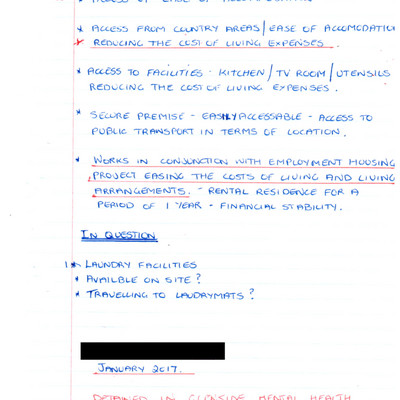 * ACCESS FROM COUNTRY AREAS / EASE OF ACCOMODATION
* REDUCING THE COST OF LIVING EXPENSES.
* ACCESS TO FACILITIES - KITCHEN / TV ROOM / UTENSILS
REDUCING THE COST OF LIVING EXPENSES.
* SECURE PREMISE - EASILY ACCESSABLE - ACCESS TO
PUBLIC TRANSPORT IN TERMS OF LOCATION.
* WORKS IN CONJUNCTION WITH EMPLOYMENT HOUSING
PROJECT EASING THE COSTS OF LIVING AND LIVING
ARRANGEMENTS. - RENTAL RESIDENCE FOR A
PERIOD OF 1 YEAR - FINANCIAL STABILITY.
IN QUESTION
1 * LAUNDRY FACILITIES
* AVAILBLE ON SITE?
* TRAVELLING TO LAUDRYMATS?
JANUARY 2017.
DETAINED IN GLENSIDE MENTAL HEALTH